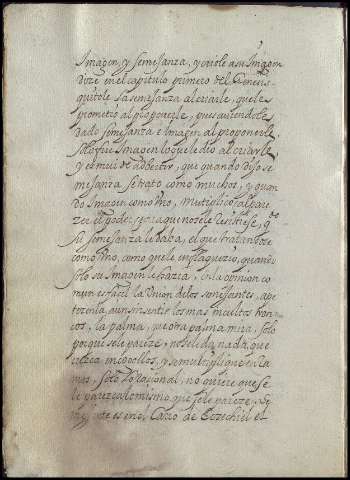 Imagen, y semejanza, y criole a su Imagen
dize en el capitulo primero del Genesis
quitole la semejanza al criarle, que le
prometió al proponerle, pues auiendole
dado semejanza e imagen al proponerle
solo fue Imagen lo que le dio al criarle
y es muy de advertir, que quando dijo se
mejanza se trató como muchos, y quan
do Imagen como Uno, multiplicó al pare
zer el poder, para que no se le resistiese, q.do
su semejanza le daba, el que tratandose
como Uno, como que le
solo su Imagen le hazia, en la opinion co
mun es facil la Union de los semejantes, ape
tezenla, aun sin sentir los mas incultos tron
cos, la palma, que otra palma mira, solo
porque se le pareze, no se le da nada, que
crezca en cogollos, y se multiplique en ra
mas, solo lo Racional, no quiere que se
le parezca lo mismo que se le pareze,
Caso de Ezechiel el